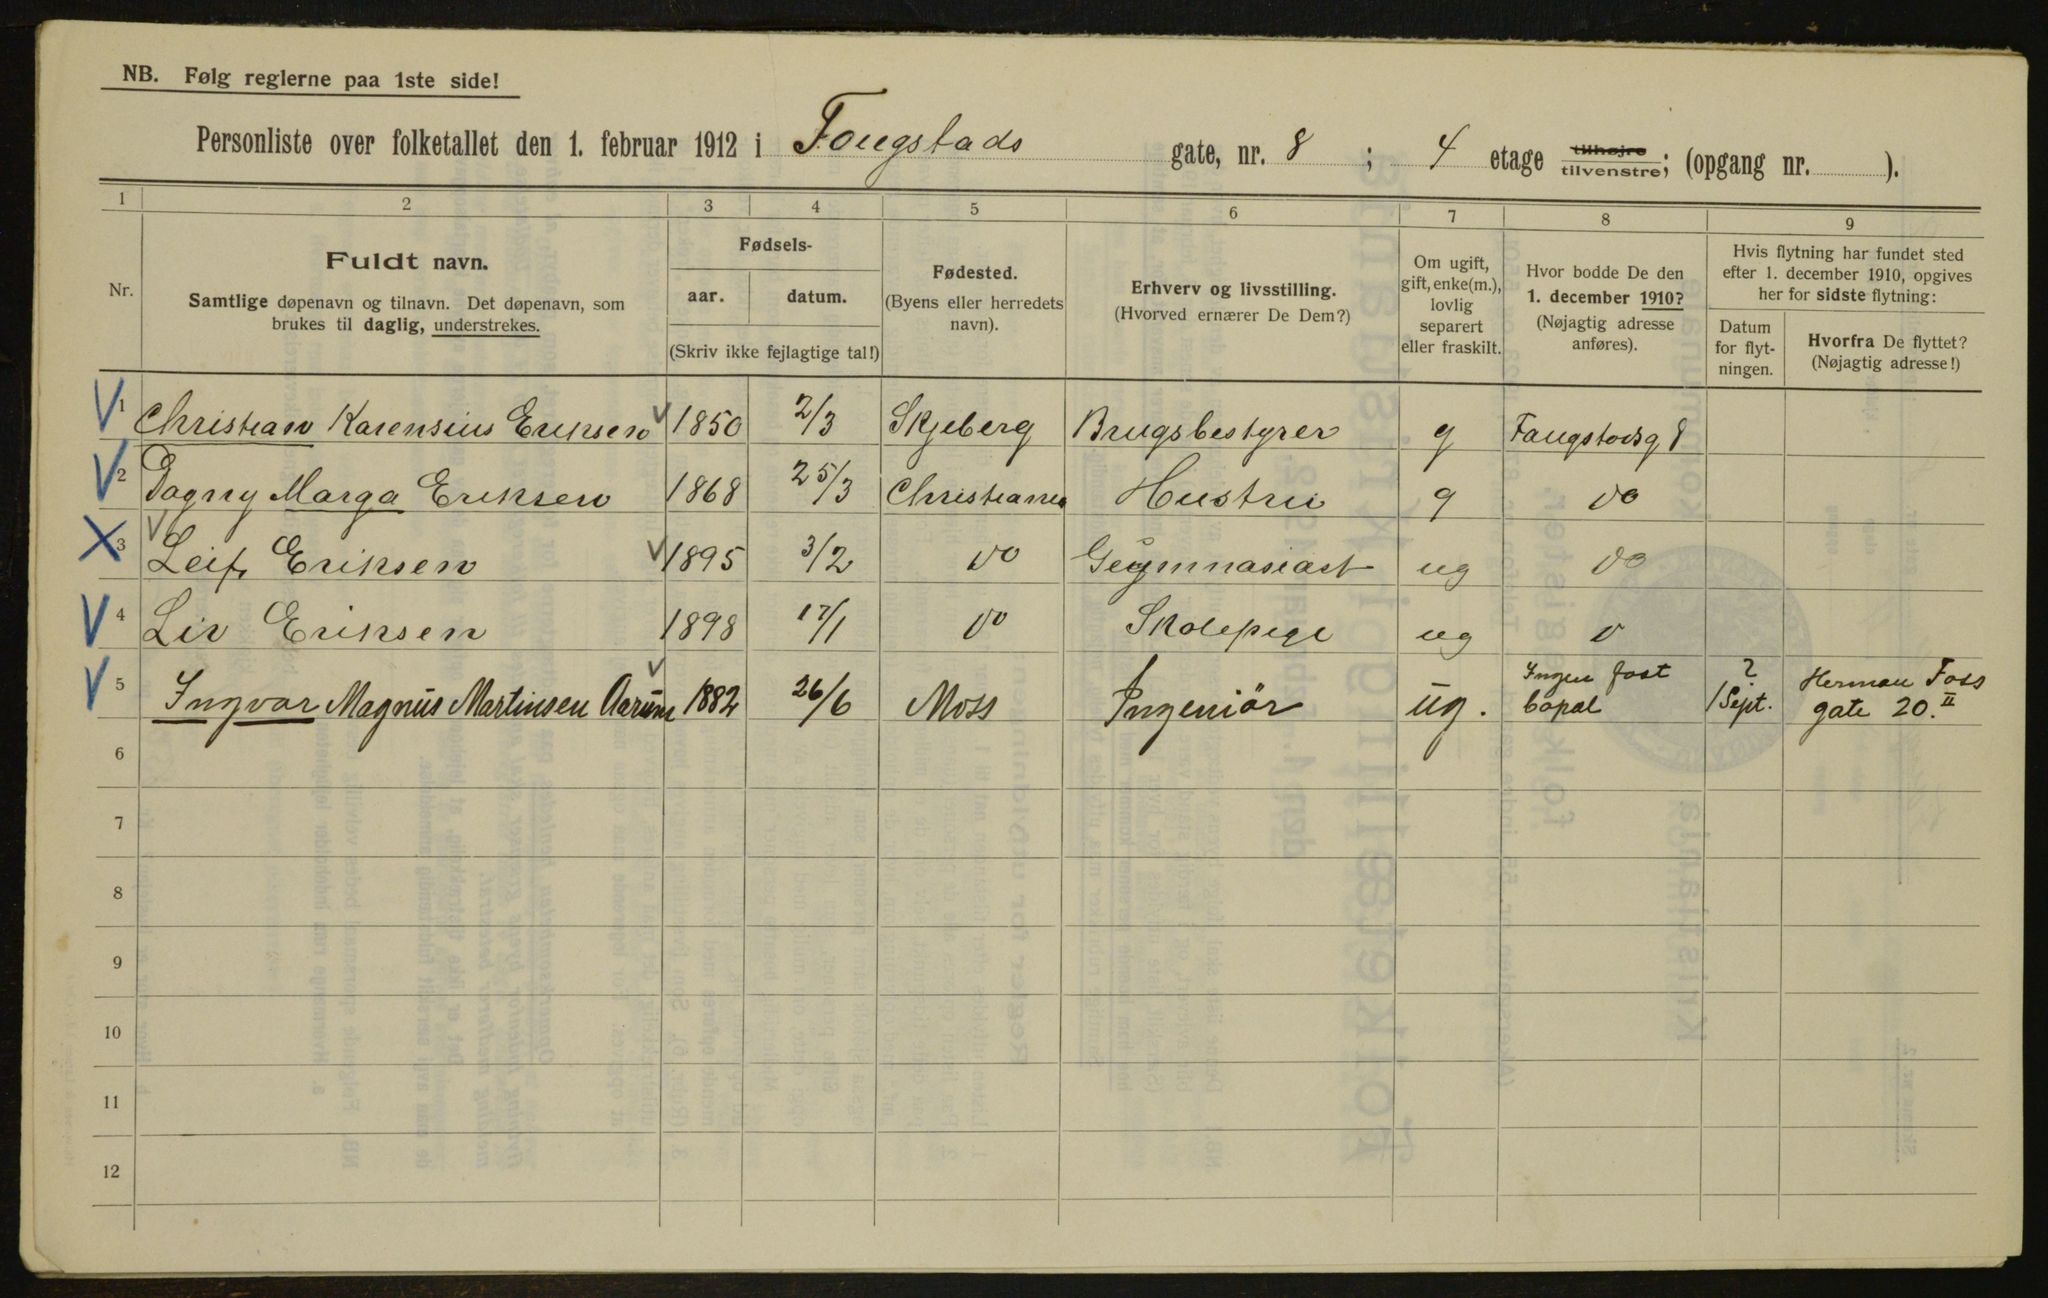 NB. Følg reglerne paa 1ste side!
Personliste over folketallet den 1. februar 1912 i Fougstads gate, nr. 8 ; 4 etage tilhøjre tilvenstre; (opgang nr. ).
1 2 3 4 5 6 7 8 9
Nr.
Fuldt navn.
Samtlige døpenavn og tilnavn. Det døpenavn, som
brukes til daglig, understrekes.
Fødsels-
aar. datum.
(Skriv ikke fejlagtige tal!)
Fødested.
(Byens eller herredets
navn).
Erhverv og livsstilling.
(Hvorved ernærer De Dem?)
Om ugift,
gift, enke(m.),
lovlig
separert
eller fraskilt.
Hvor bodde De den
1. december 1910?
(Nøjagtig adresse
anføres).
Hvis flytning har fundet sted
efter 1. december 1910, opgives
her for sidste flytning:
Datum
for flyt-
ningen.
Hvorfra De flyttet?
(Nøjagtig adresse!)
1 Christian Karensius Eriksen 1850 2/3 Skjeberg Brugsbestyrer g Faugstadsg 8
2 Dagny Marga Eriksen 1868 25/3 Christiania Hustru g do
3 Leif Eriksen 1895 3/2 do Gymnasiast ug do
4 Liv Eriksen 1898 17/1 do Skolepige ug d
5 Ingvar Magnus Martinsen Aarum 1882 26/6 Moss Ingeniör ug. Ingen fast bopæl ? /Sept. Herman Foss gate 20.II
6
7
8
9
10
11
12